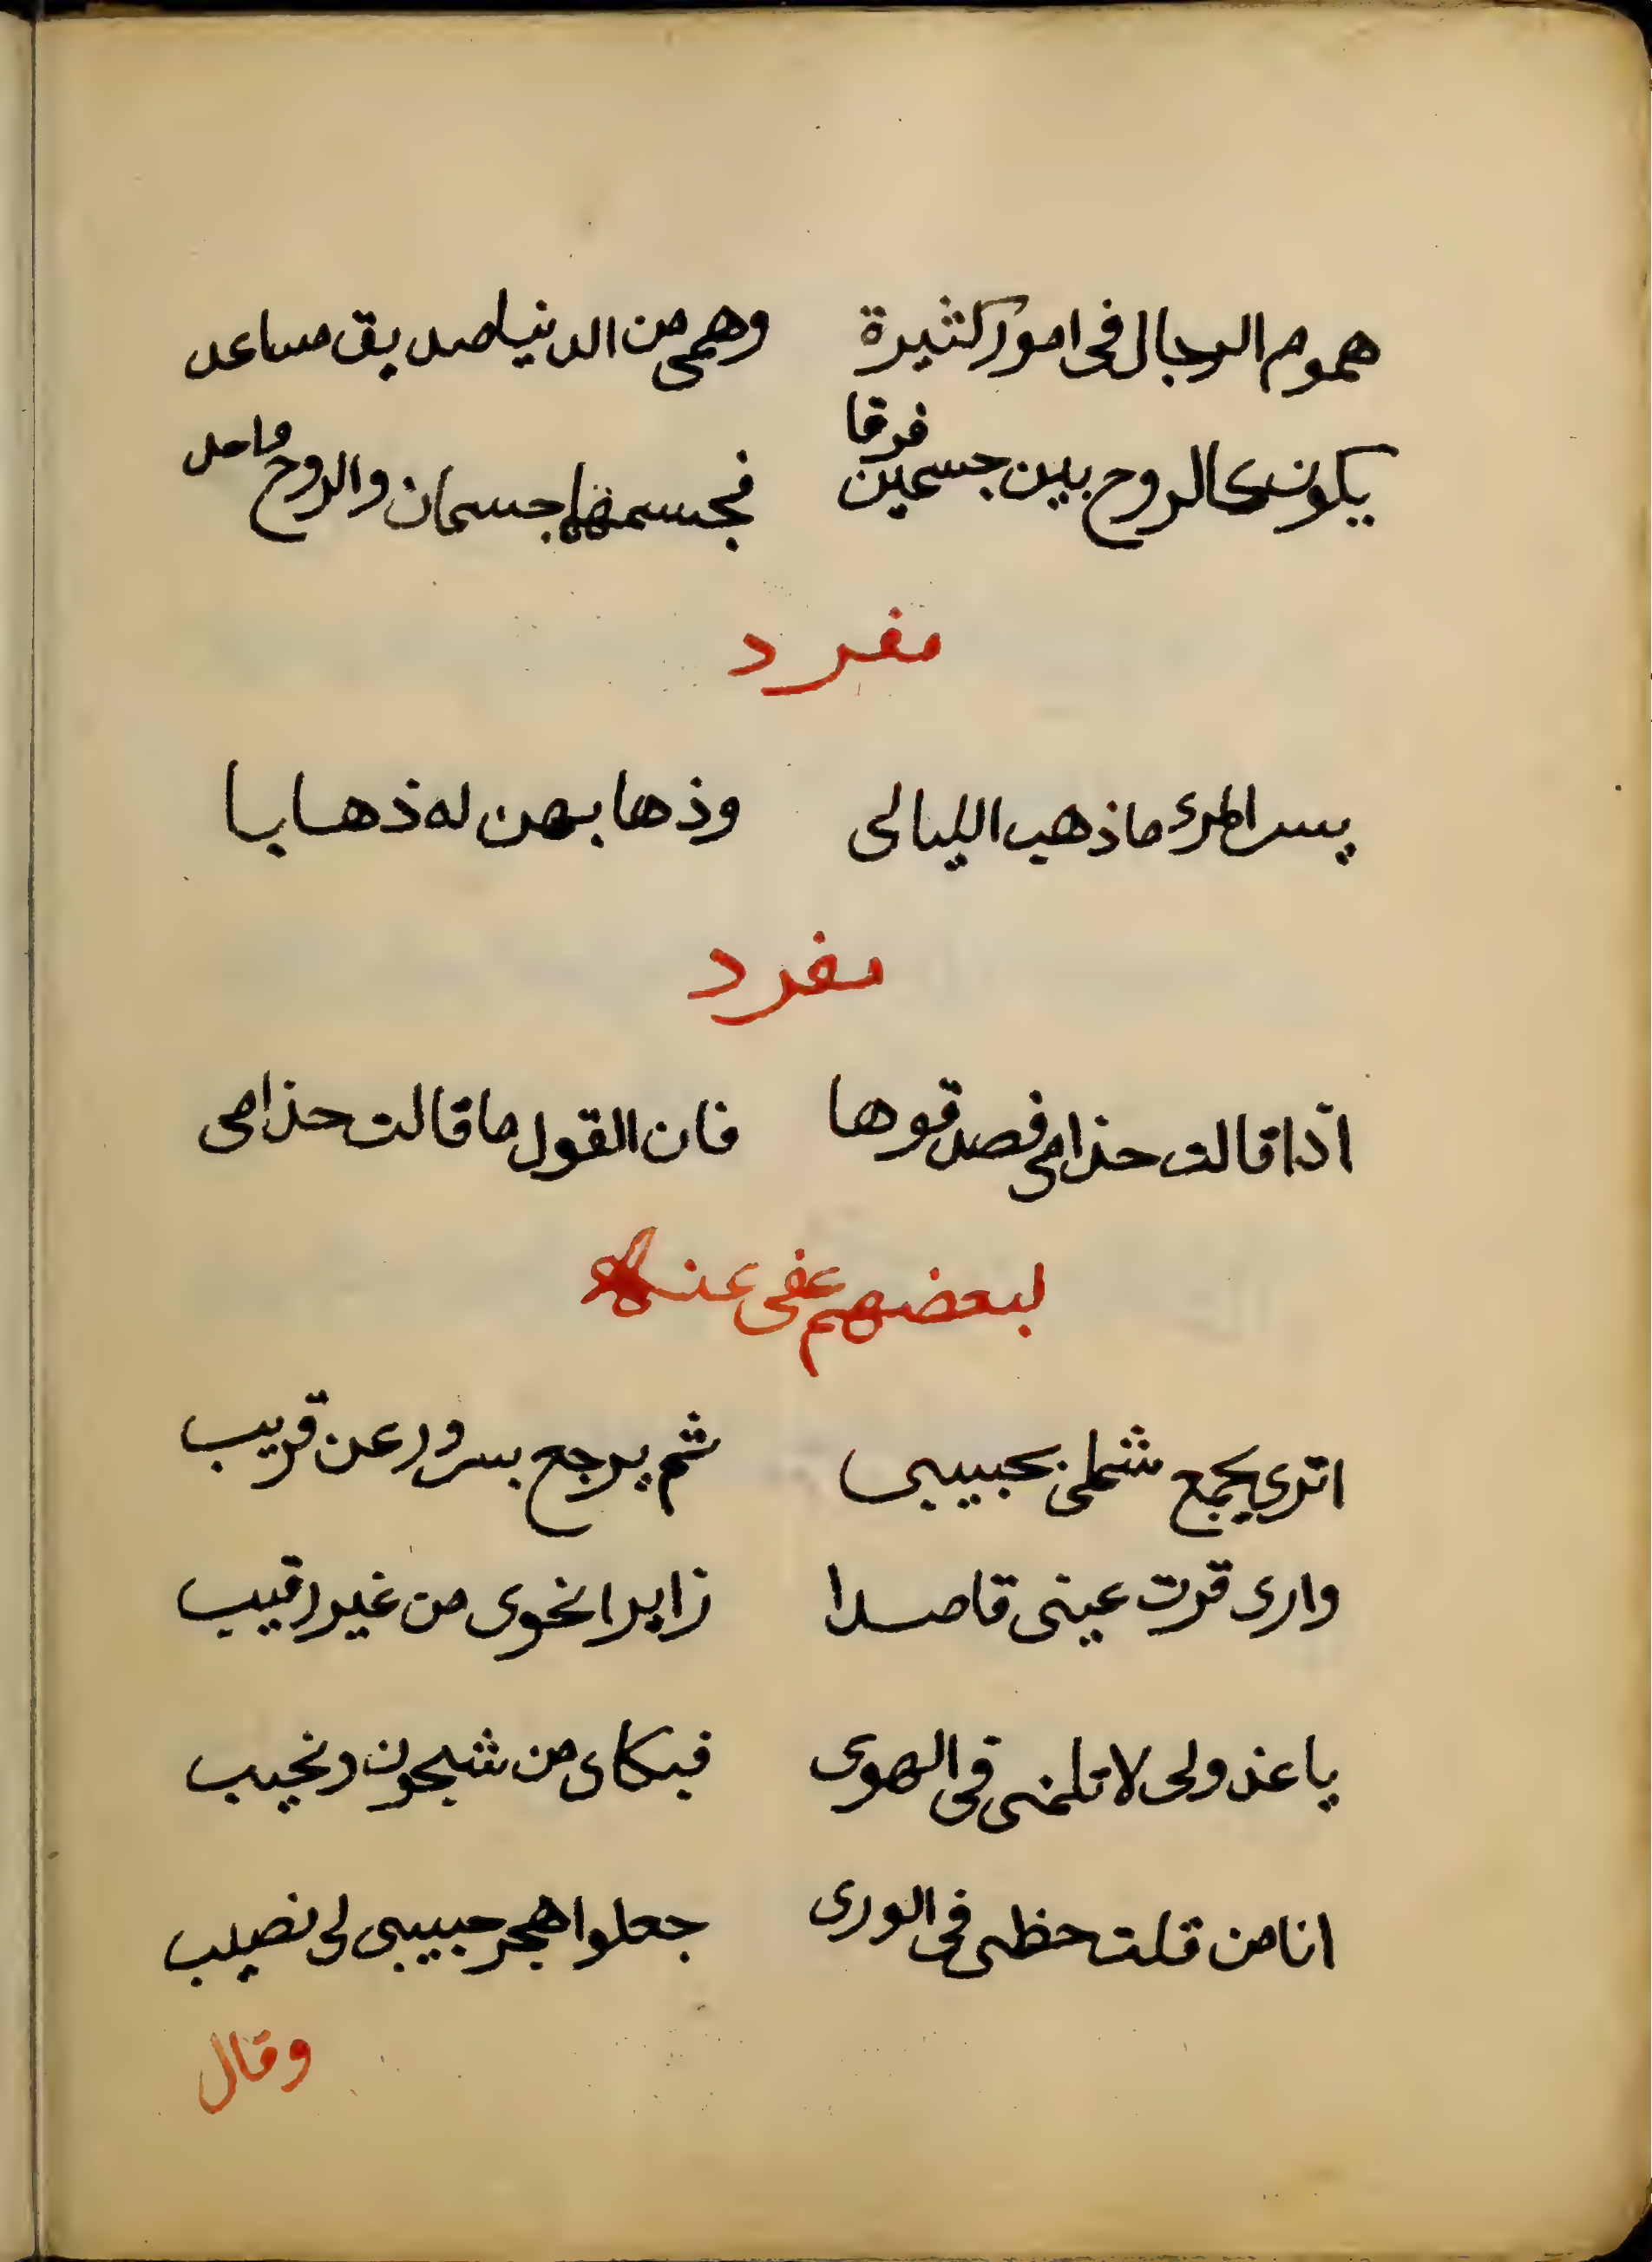 هموم الرجال فى امور كثيرة وهمى من الدنيا صديق مساعد
يكون كالروح بين جسمين فرقا فجسمهما جسمان والروح واحد
مفرد
يسر المرء ما ذهب الليالى وذهابهن له ذهابا
مفرد
اذا قالت حذامى فصدقوها فان القول ما قالت حذامى
لبعضهم عفى عنه
اترى يجمع شملى بحبيبى ثم يرجع بسرور عن قريب
وارى قرت عينى قاصدا زايرا نحوى من غير رقيب
يا عذولى لا تلمنى فى الهوى فبكاى من شجون ونحيب
انا من قلت حظى فى الورى جعلوا هجر حبيبى لى نصيب
وقال